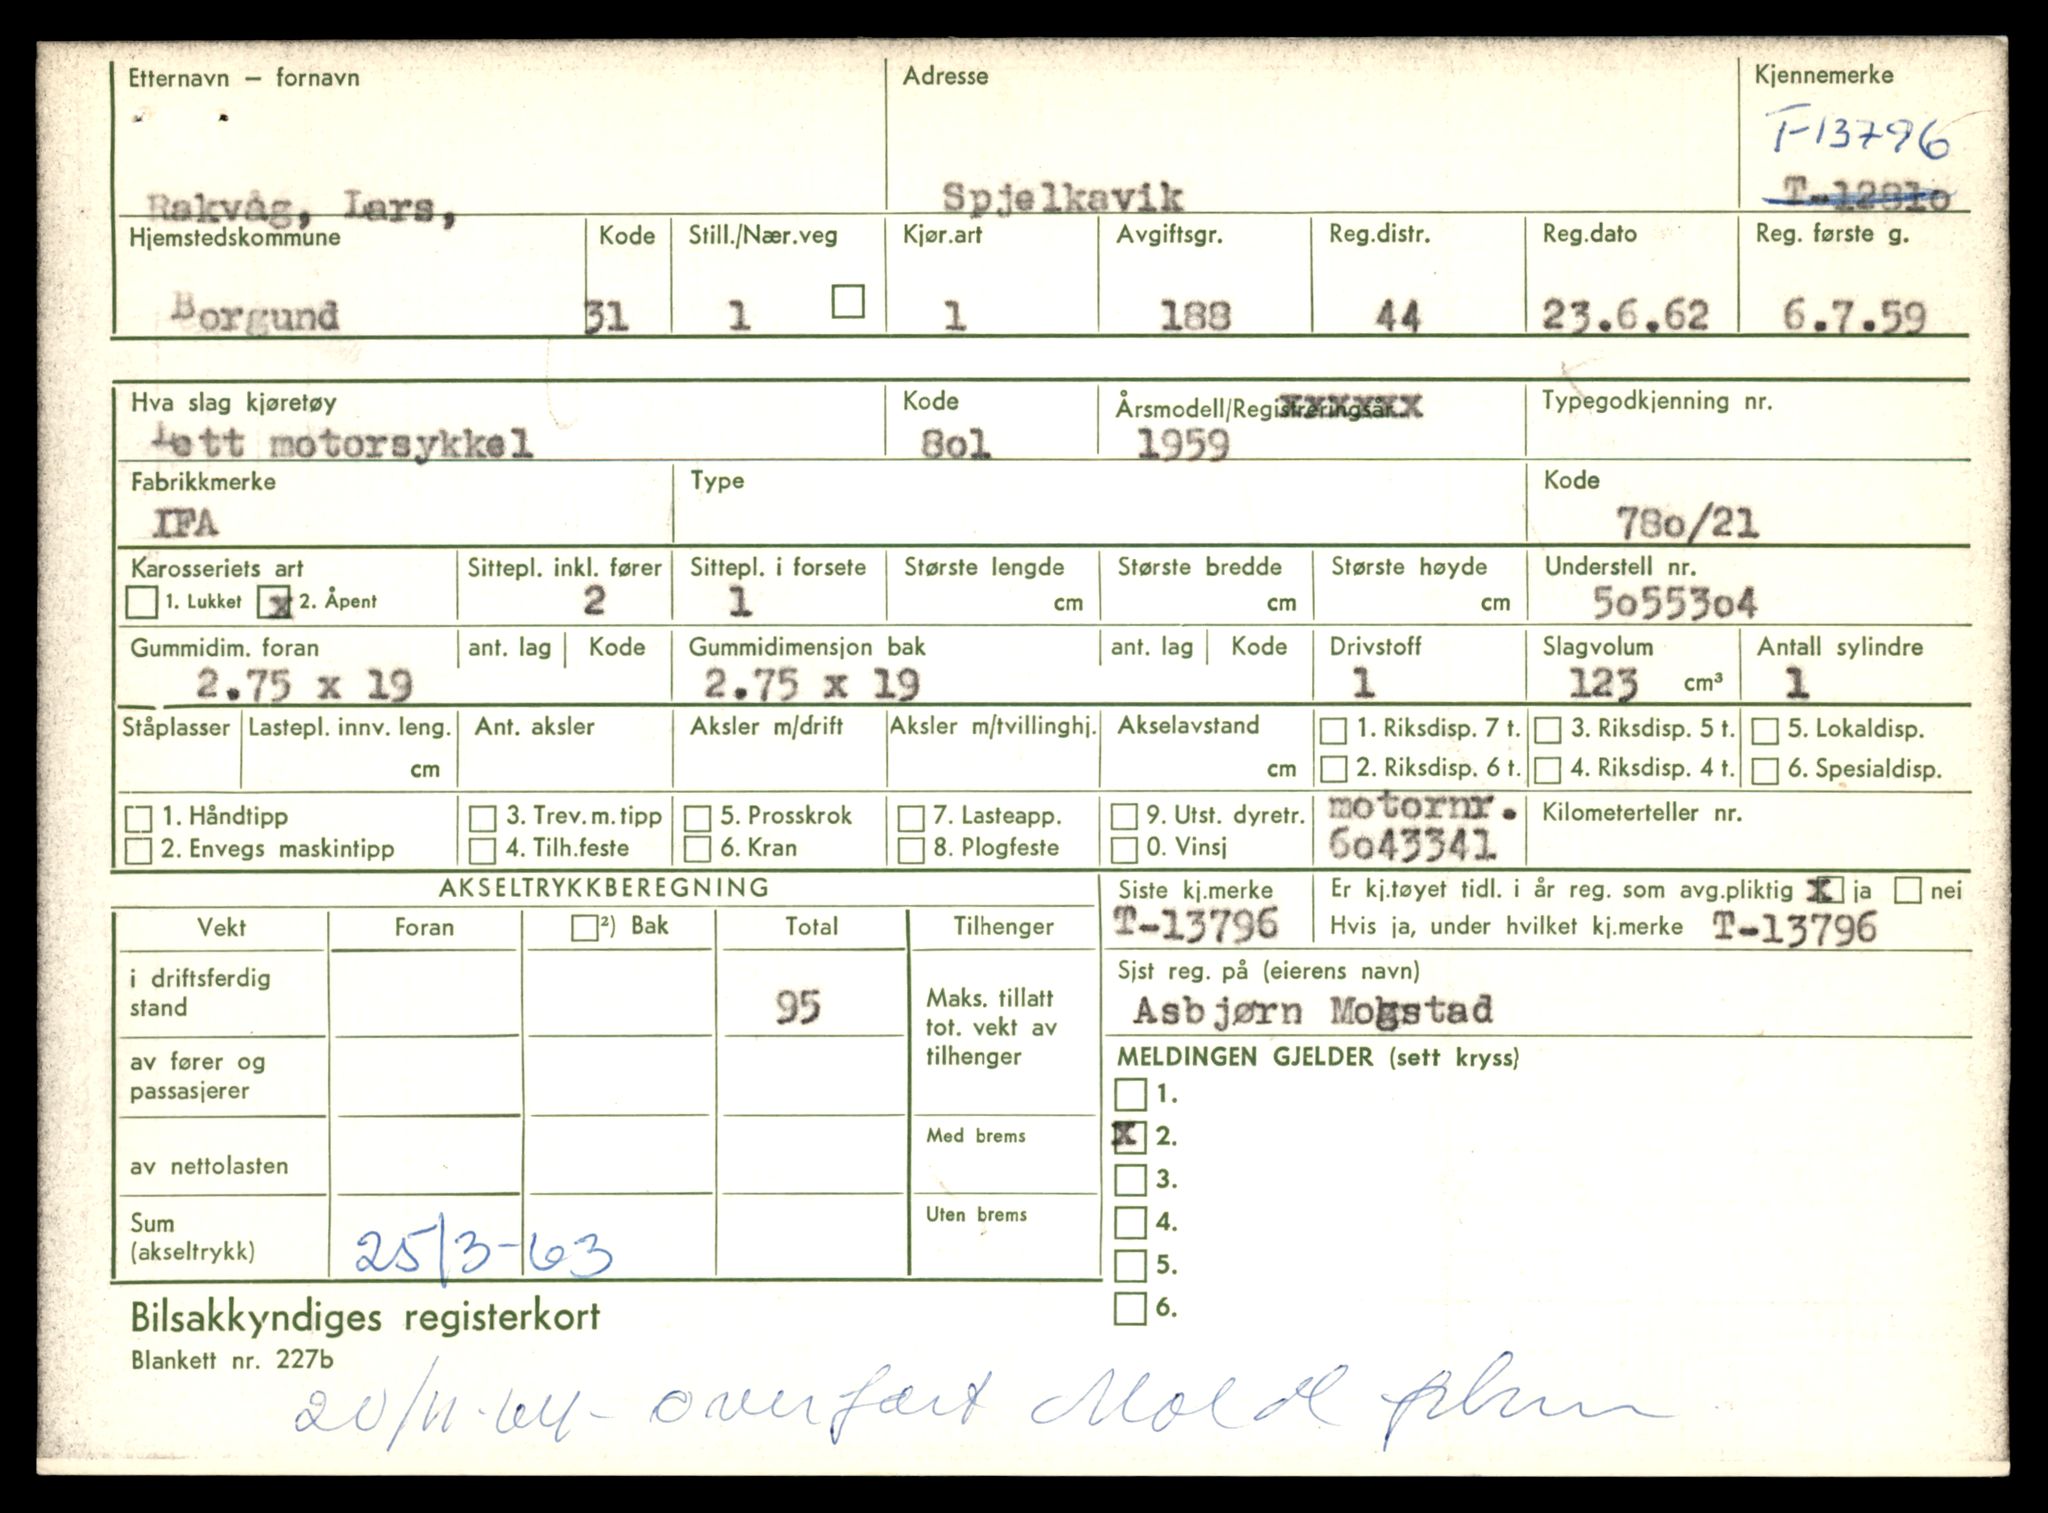 Etternavn – fornavn Adresse Kjennemerke
T-13796
Rakvåg, Lars, Spjelkavik T-12810
Hjemstedskommune Kode Still./Nær.veg Kjør.art Avgiftsgr. Reg.distr. Reg.dato Reg. første g.
Borgund 31 1 1 188 44 23.6.62 6.7.59
Hva slag kjøretøy Kode Årsmodell/Registreringsår Typegodkjenning nr.
Lett motorsykkel 8o1 1959
Fabrikkmerke Type Kode
IFA 78o/21
Karosseriets art Sittepl. inkl. fører Sittepl. i forsete Største lengde Største bredde Største høyde Understell nr.
1. Lukket x 2. Åpent 2 1 cm cm cm 5o553o4
Gummidim. foran ant. lag Kode Gummidimensjon bak ant. lag Kode Drivstoff Slagvolum Antall sylindre
2.75 x 19 2.75 x 19 1 123 cm³ 1
Ståplasser Lastepl. innv. leng. Ant. aksler Aksler m/drift Aksler m/tvillinghj. Akselavstand 1. Riksdisp. 7 t. 3. Riksdisp. 5 t. 5. Lokaldisp.
cm cm 2. Riksdisp. 6 t. 4. Riksdisp. 4 t. 6. Spesialdisp.
1. Håndtipp 3. Trev. m. tipp 5. Prosskrok 7. Lasteapp. 9. Utst. dyretr. motornr. Kilometerteller nr.
2. Envegs maskintipp 4. Tilh.feste 6. Kran 8. Plogfeste 0. Vinsj 6o43341
AKSELTRYKKBEREGNING Siste kj.merke Er kj.tøyet tidl. i år reg. som avg.pliktig x ja nei
Vekt Foran ²) Bak Total Tilhenger T-13796 Hvis ja, under hvilket kj.merke T-13796
i driftsferdig stand 95 Maks. tillatt tot. vekt av tilhenger Sist reg. på (eierens navn)
Asbjørn Mogstad
av fører og passasjerer MELDINGEN GJELDER (sett kryss)
1.
av nettolasten Med brems x 2.
3.
Sum (akseltrykk) 25/3-63 Uten brems 4.
5.
Bilsakkyndiges registerkort 6.
Blankett nr. 227b
20/11-64 - overført Molde